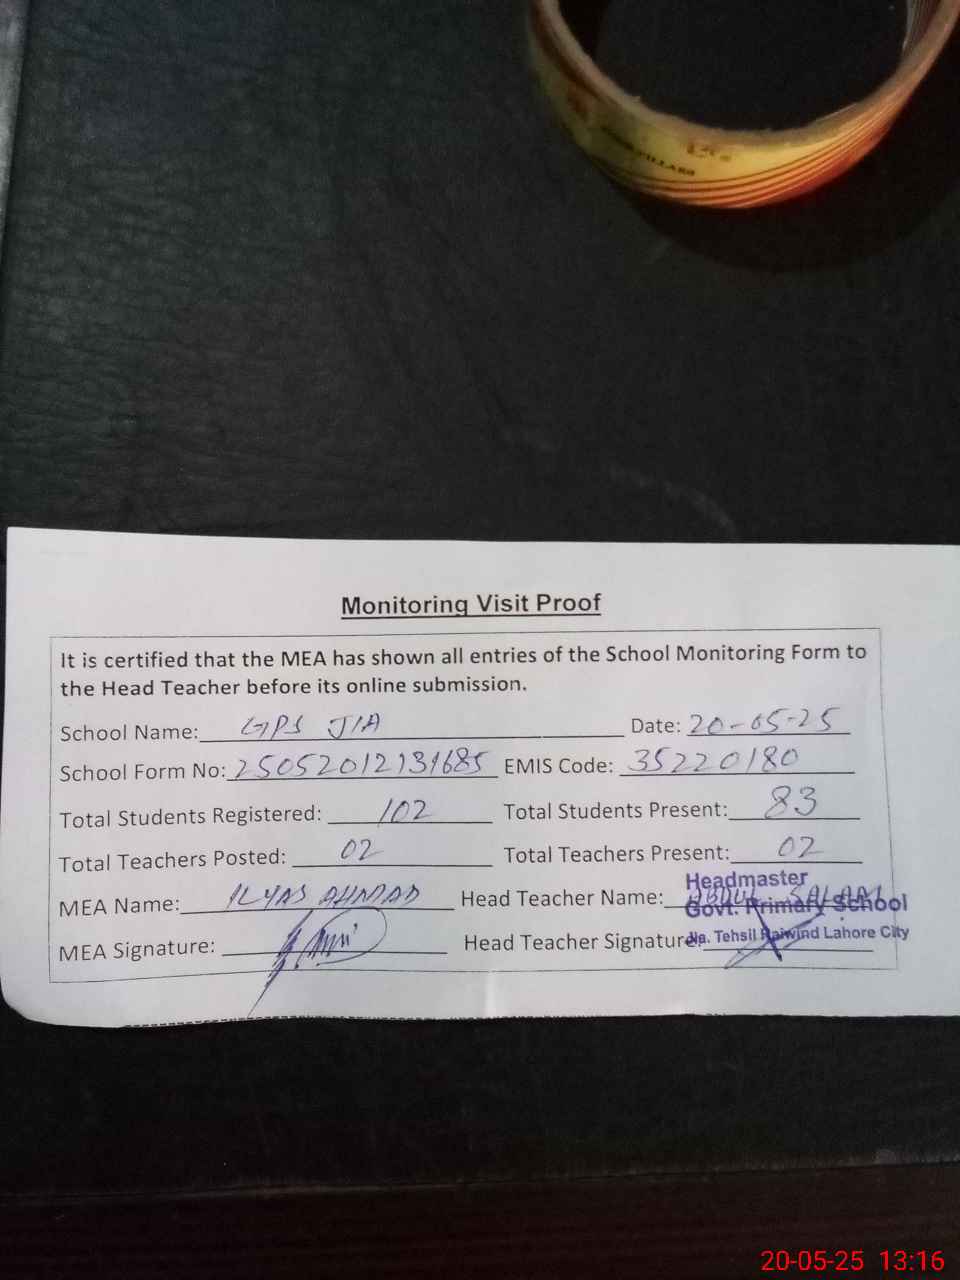 Monitoring Visit Proof
It is certified that the MEA has shown all entries of the School Monitoring Form to
the Head Teacher before its online submission.
School Name: GPS JIA Date: 20-05-25
School Form No: 25052012131685 EMIS Code: 35220180
Total Students Registered: 102 Total Students Present: 83
Total Teachers Posted: 02 Total Teachers Present: 02
MEA Name: ILYAS AHMAD Head Teacher Name: ABDUL SALAM
Headmaster
Govt. Primary School
Jia. Tehsil Raiwind Lahore City
MEA Signature: Head Teacher Signature:
20-05-25 13:16